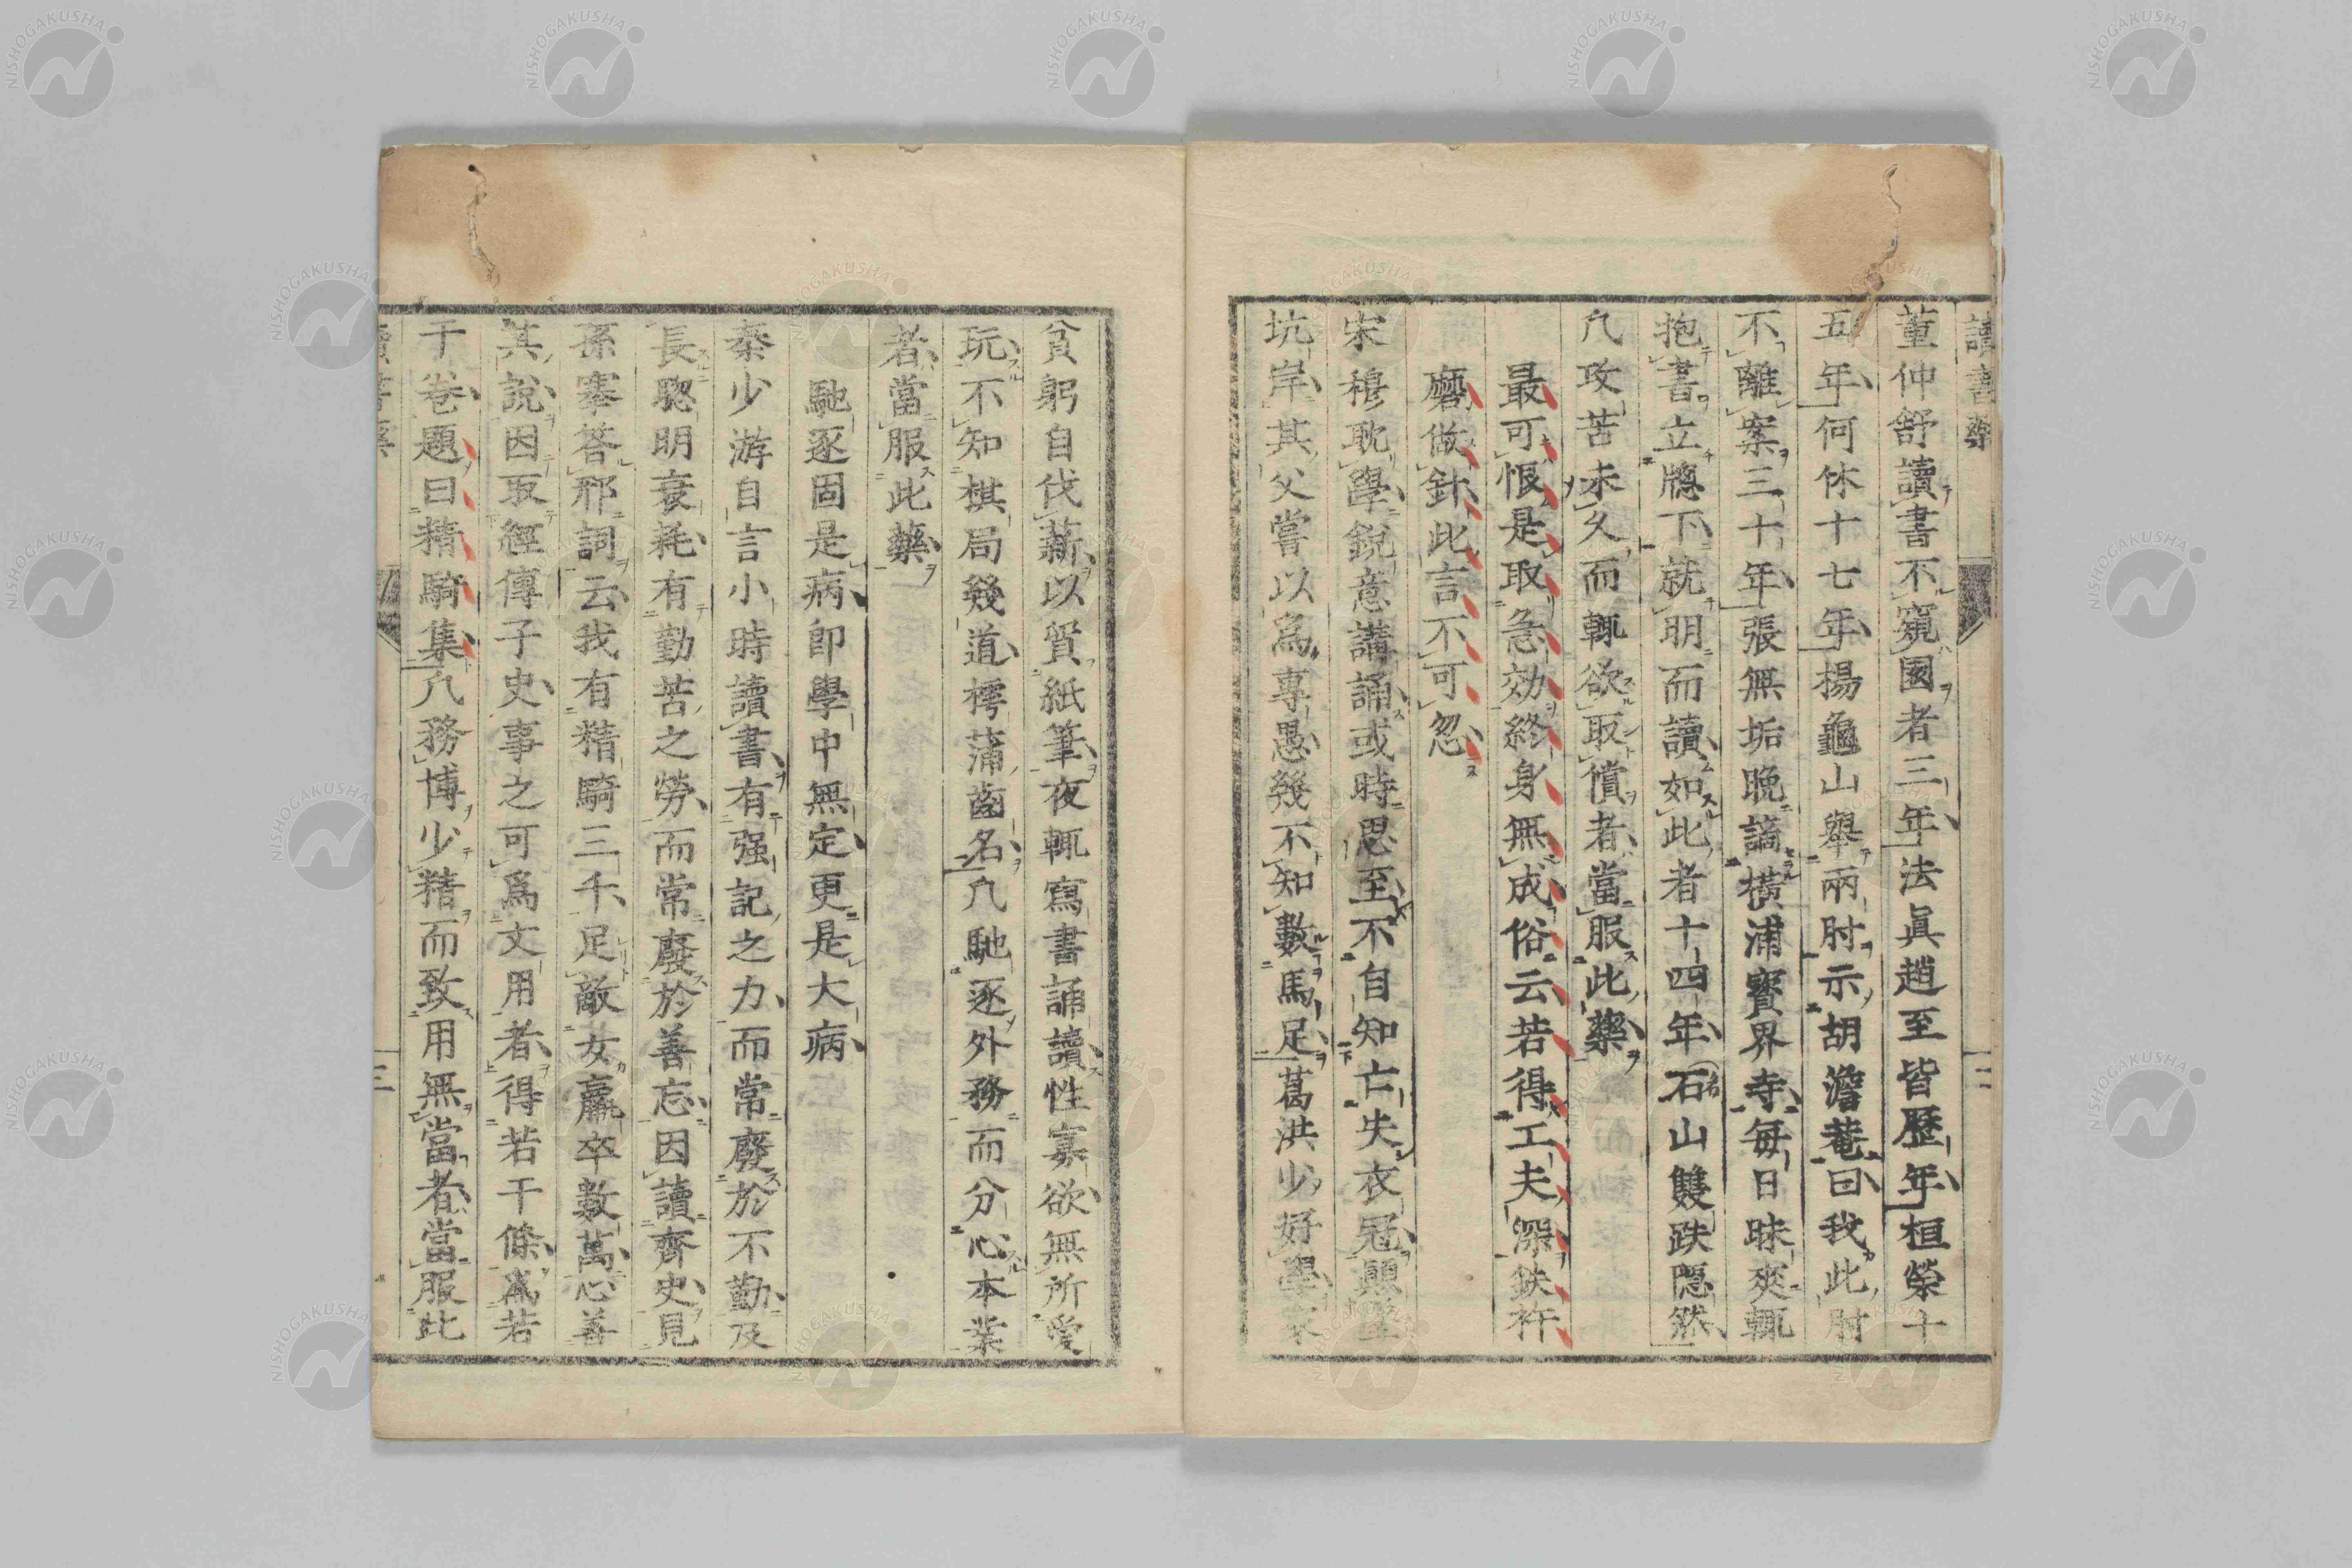 讀書藥
董仲舒讀書不窺園者三年法眞趙至皆歷年桓榮十
五年何休十七年楊龜山舉兩肘示胡澹菴曰我此肘
不離案三十年張無垢晩謫橫浦寳界寺每日昧爽輒
抱書立牕下就明而讀如此者十四年石山雙趺隱然
凢攻苦未久而輒欲取償者當服此藥
最可恨是取急効終身無成俗云若得工夫深鉄杵
磨做針此言不可忽
宋穆耽學銳意講誦或時思至不自知亡失衣冠顚墜
坑岸其父嘗以爲專愚幾不知數馬足葛洪少好學家
貧躬自伐薪以貿紙筆夜輒寫書誦讀性寡欲無所愛
玩不知棋局幾道樗蒲齒名凢馳逐外務而分心本業
者當服此藥
馳逐固是病卽學中無定更是大病
秦少游自言小時讀書有强記之力而常廢於不勤及
長聦明衰耗有勤苦之勞而常廢於善忘因讀齊史見
孫搴答邢詞云我有精騎三千足敵女羸卒數萬心善
其說因取經傳子史事之可爲文用者得若干條爲若
干卷題曰精騎集凢務博少精而致用無當者當服此
NISHOGAKUSHA